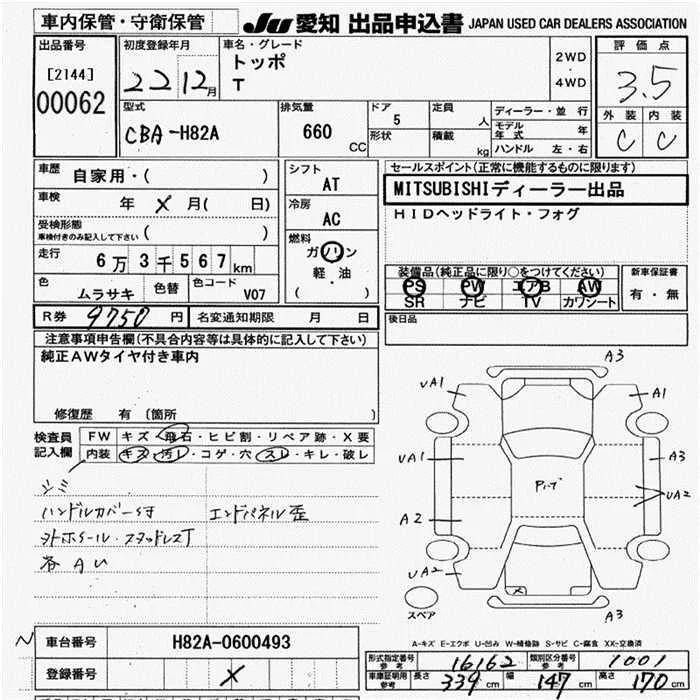 車内保管・守衛保管
JU 愛知 出品申込書 JAPAN USED CAR DEALERS ASSOCIATION
出品番号 初度登録年月 車名・グレード 評価点
[2144] 22 12月 トッポ 2WD・4WD 3.5
00062 T
型式 排気量 ドア 定員 ディーラー・並行 外装 内装
CBA-H82A 660 CC 5 人 モデル年式 年 C C
形状 積載 kg ハンドル 左・右
車歴 自家用・( ) シフト AT セールスポイント(正常に機能するものに限ります)
車検 年 X 月( 日) 冷房 AC MITSUBISHIディーラー出品
受検形態 車検付きのみ記入して下さい ( ) 燃料 HIDヘッドライト・フォグ
走行 6万3千567km ガソリン
色 ムラサキ 色替 色コード V07 軽・油 ( )
装備品(純正品に限り○をつけてください) 新車保証書
PS PW エアB AW 有・無
SR ナビ TV カワシート
R券 9750円 名変通知期限 月 日 後日品
注意事項申告欄(不具合内容等は具体的に記入して下さい)
純正AWタイヤ付き車内
修復歴 有 〔箇所 〕
検査員記入欄 FW キズ・飛石・ヒビ割・リペア跡・X要
内装 キズ・汚レ・コゲ・穴・スレ・キレ・破レ
シミ
ハンドルカバー付 エンドパネル歪
外ホイール・スタッドレスT
各AU
A3
UA1 A1
UA1 A3
UA2
A2
UA2
A3
スペア
A-キズ E-エクボ U-凹み W-補修跡 S-サビ C-腐食 XX-交換済
車台番号 H82A-0600493
登録番号 X
形式指定番号 参考 16162 類別区分番号 参考 1001
車庫証明用 参考 長さ 339cm 幅 147cm 高さ 170cm